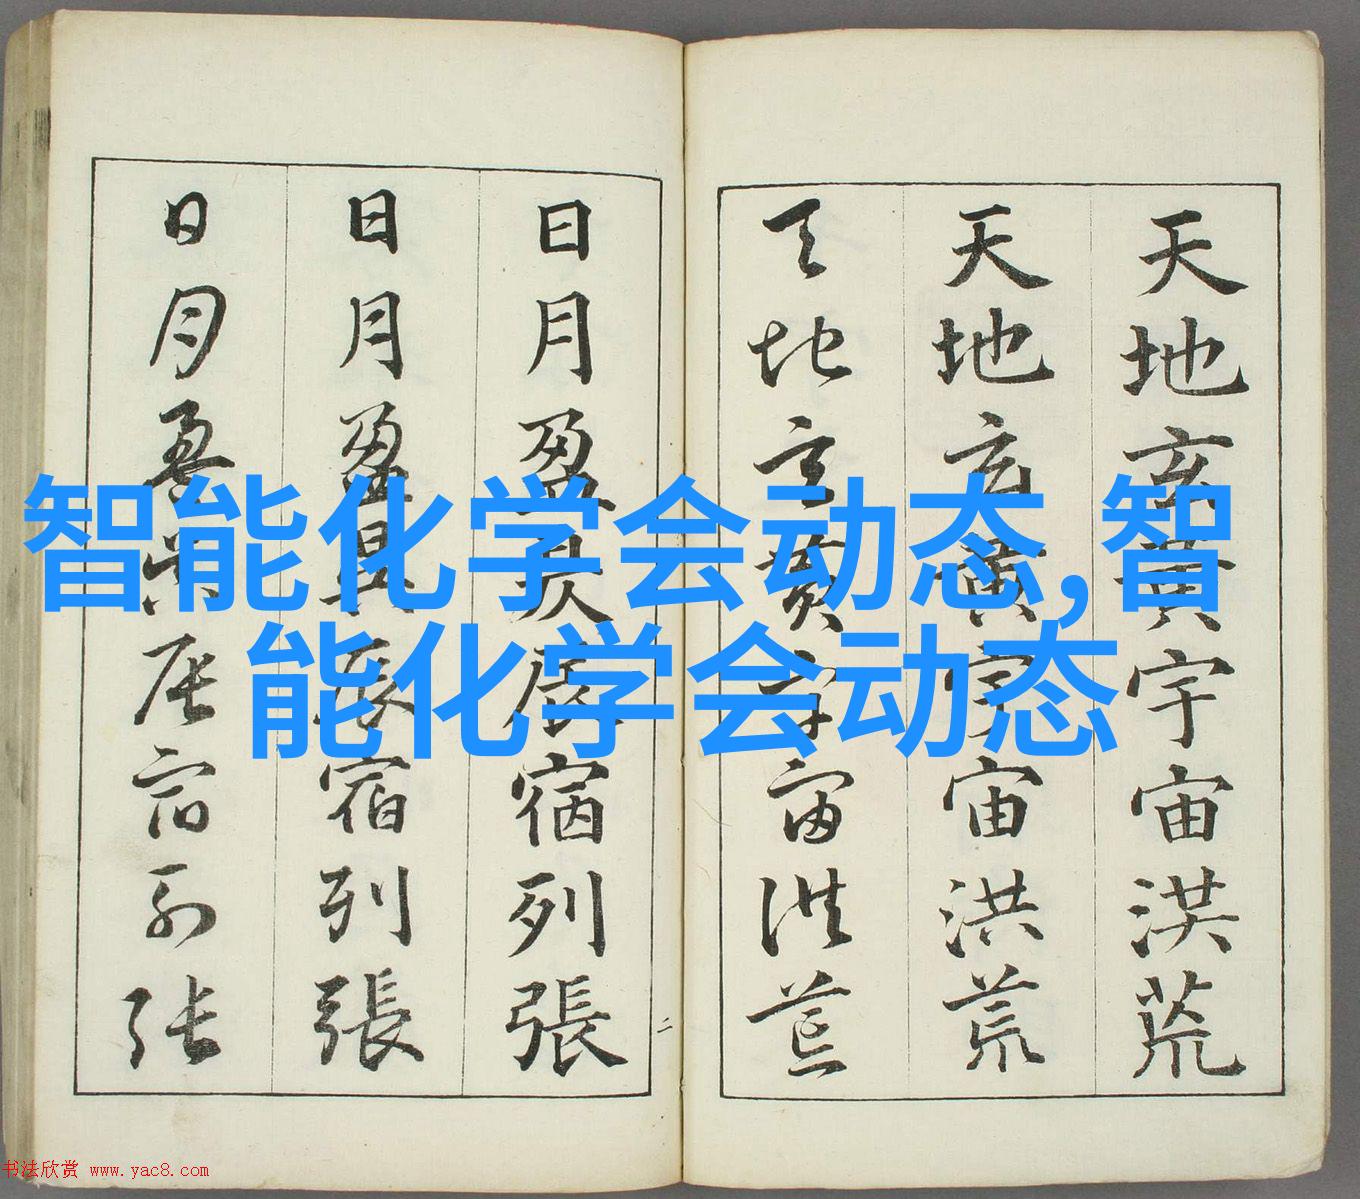 天地玄黃宇宙洪荒
天地玄黃宇宙洪荒
天地玄黃宇宙洪荒
日月盈昃辰宿列張
日月盈昃辰宿列張
日月盈昃辰宿列張
二
智能化学会动态,智
能化学会动态
书法欣赏 www.yac8.com